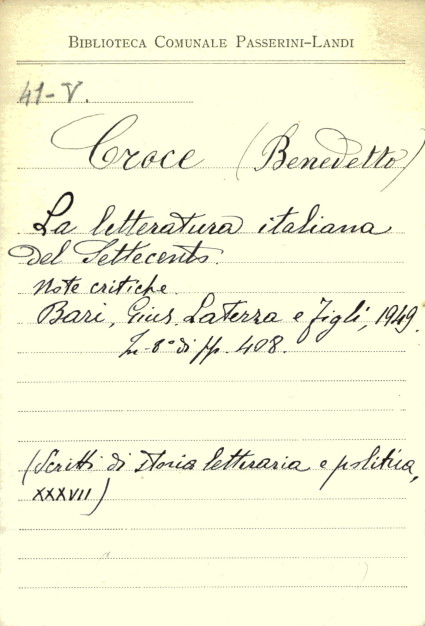 BIBLIOTECA COMUNALE PASSERINI-LANDI
41-V.
Croce (Benedetto)
La letteratura italiana
del Settecento.
Note critiche.
Bari, Gius. Laterza e figli, 1949.
In-8° di pp. 408.
(Scritti di storia letteraria e politica,
XXXVII)